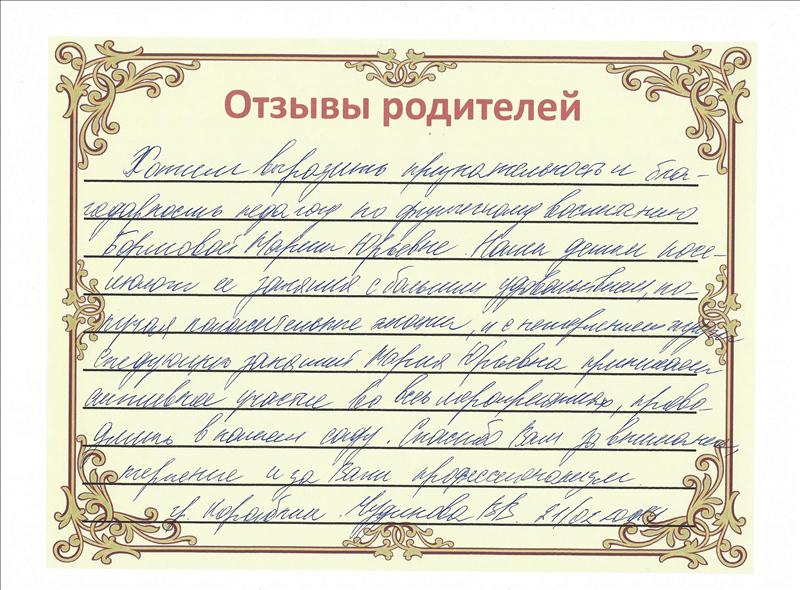 Отзывы родителей
Хотим выразить признательность и бла-
годарность педагогу по физическому воспитанию
Марии Юрьевне. Наши детки посе-
щают ее занятия с большим удовольствием, по-
лучая положительные эмоции, и с нетерпением ждут
следующих занятий. Мария Юрьевна принимает
активное участие во всех мероприятиях, прово-
димых в нашем саду. Спасибо Вам за внимание,
терпение и за Ваш профессионализм.
гр. Кораблик.